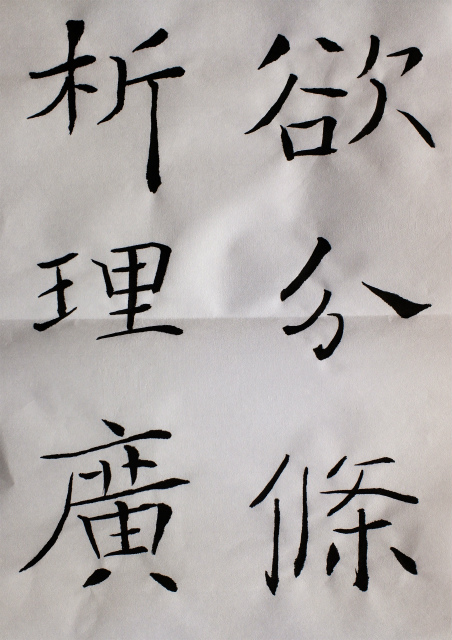 欲分條
析理廣